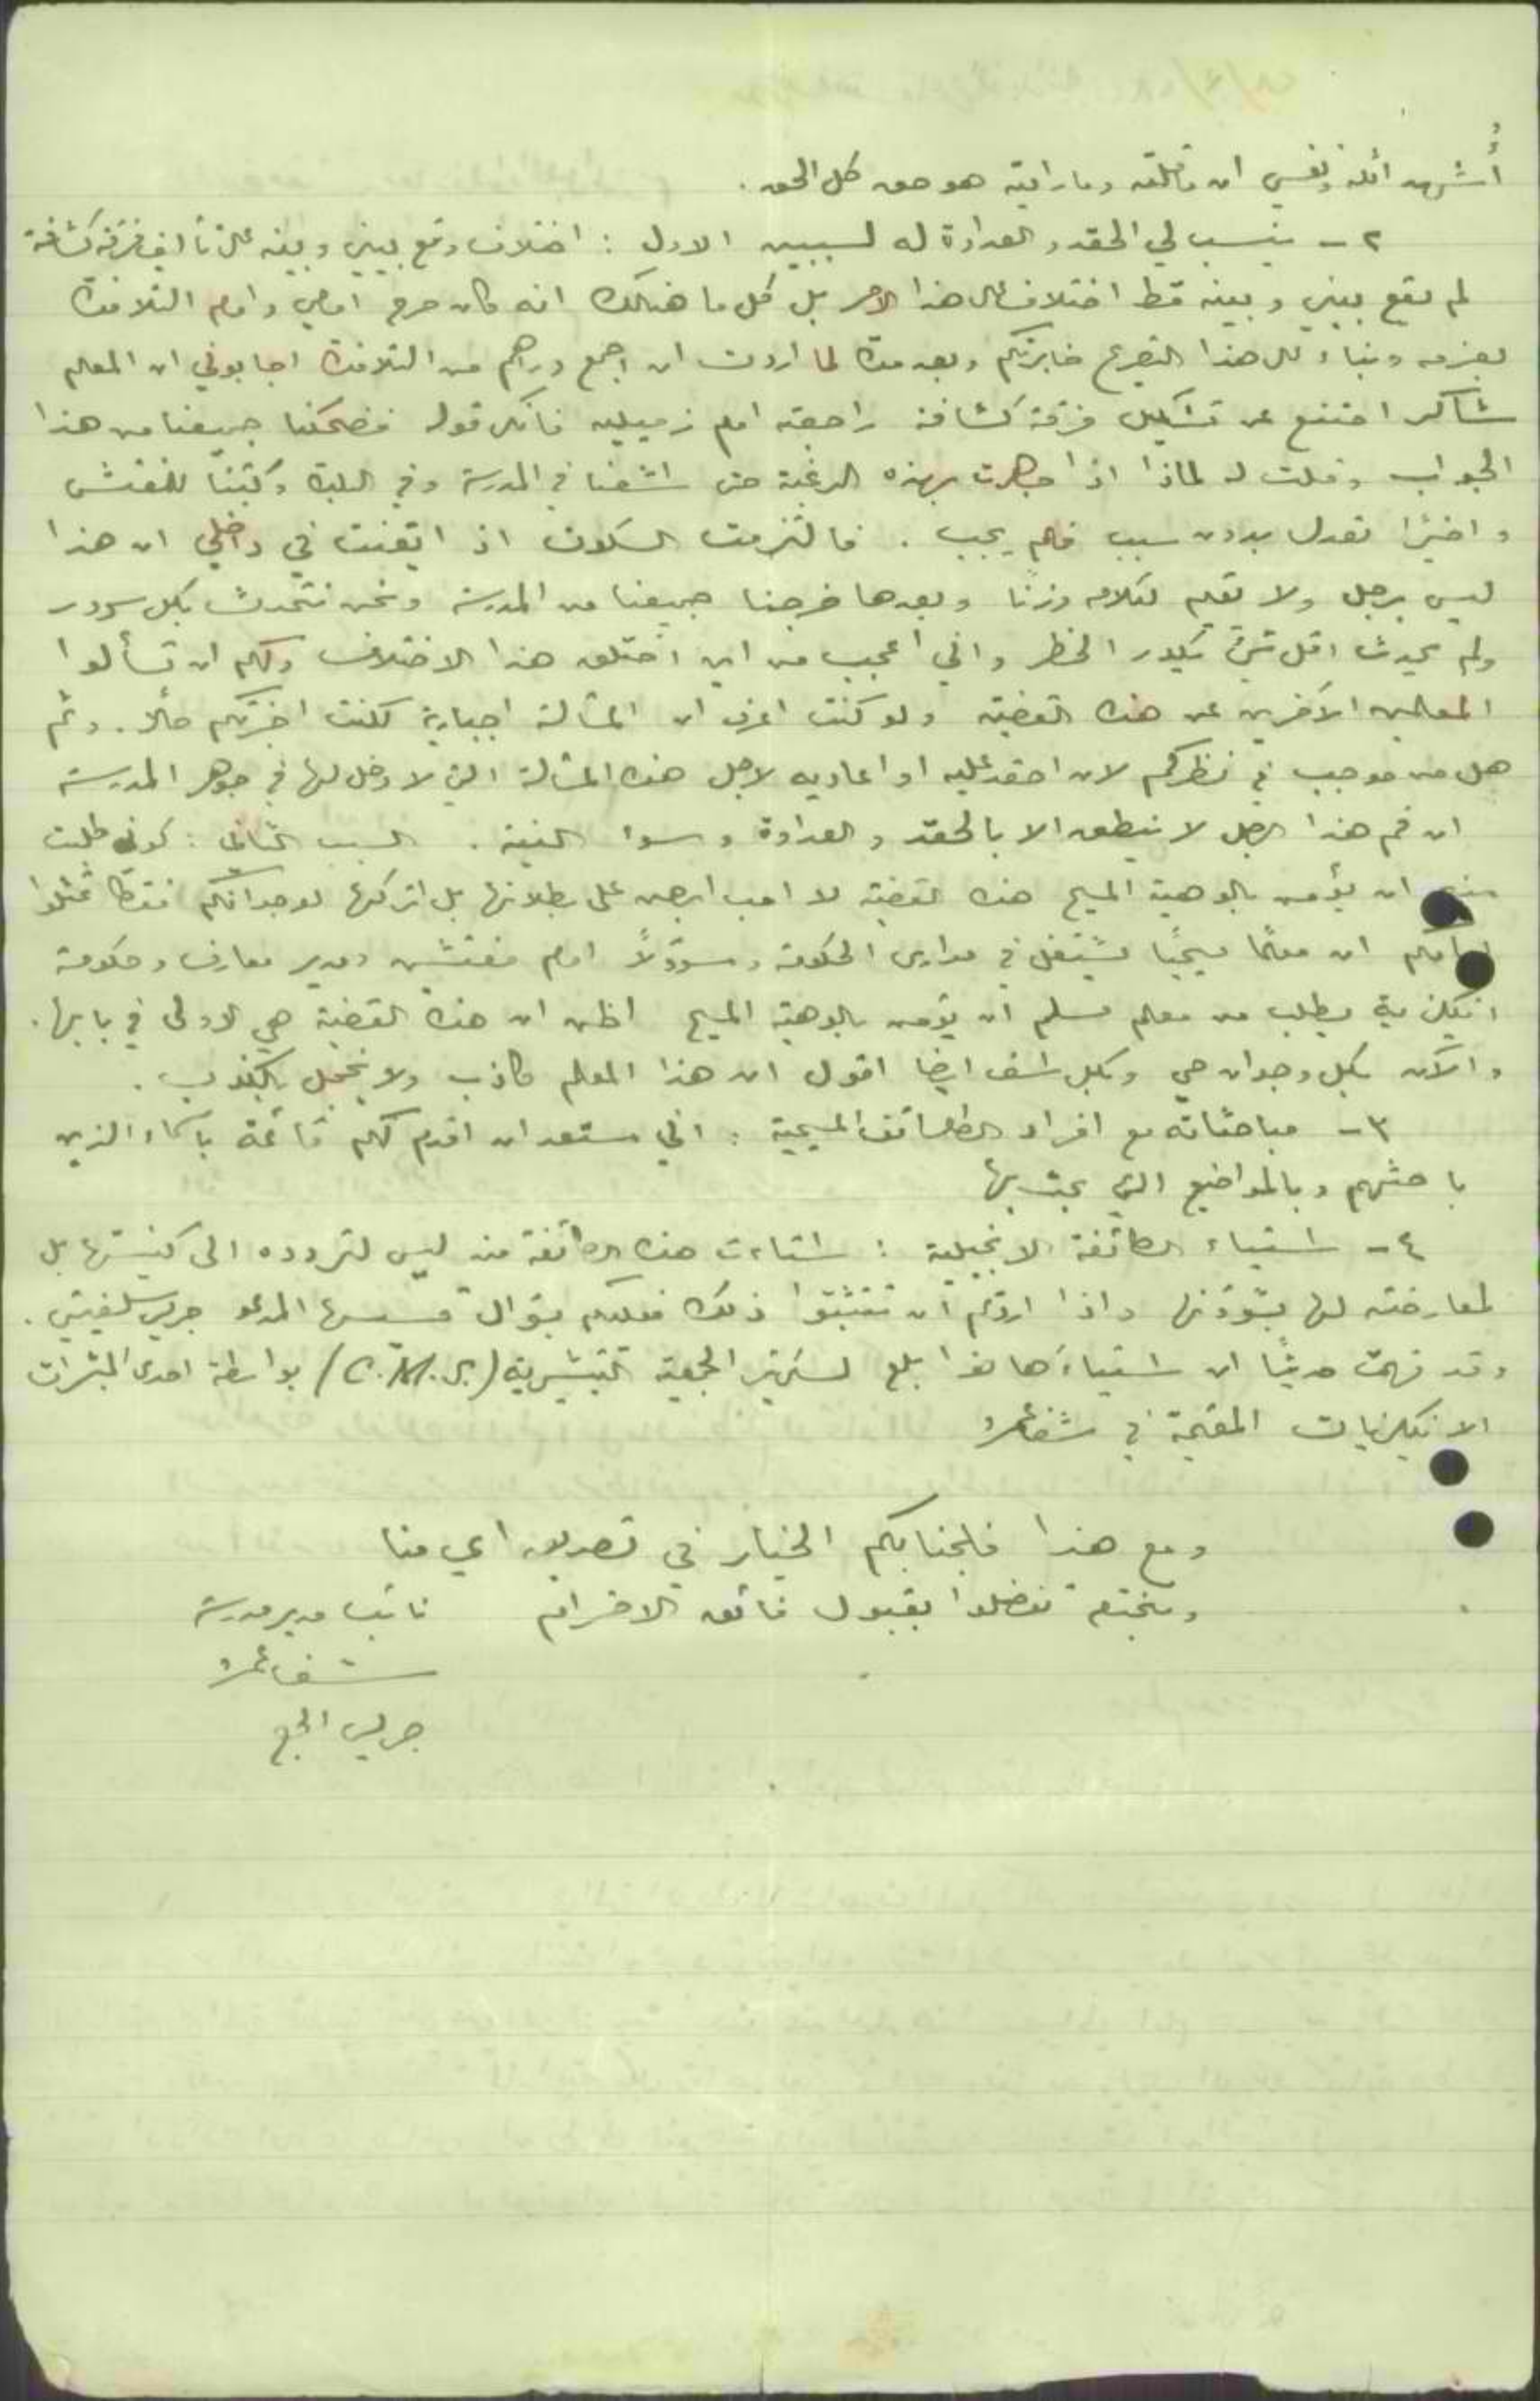 أُشهد الله ونفسي ان ما قلته وما رايته هو حق كل الحق.
٢ – ينسب لي الحقد والعداوة له لسببين الاول : اختلاف وقع بيني وبينه على تأليف فرقة كشافة
لم يقع بيني وبينه قط اختلاف على هذا الامر بل كل ما هنالك انه كان صرح امامي وامام التلامذة
بعزمه وبناء على هذا التصريح خابرتكم وبعد مدة لما اردت ان اجمع دراهم من التلامذة اجابوني ان المعلم
شاكر امتنع عن تشكيل فرقة كشافة راجعته امام زميليه فانكر قوله فضحكنا جميعنا من هذا
الجواب وقلت له لماذا اذا جاهرت بهذه الرغبة حتى اشعنا في المدرسة وفي البلدة وكتبنا للمفتش
واخيرًا تعدل بدون سبب فلم يجب. فالتزمت السكوت اذ ايقنت في داخلي ان هذا
ليس برجل ولا يقيم لكلامه وزنًا وبعدها خرجنا جميعنا من المدرسة ونحن نتحدث بكل سرور
ولم يحدث اقل شيء يكدر الخاطر واني اعجب من اين اختلق هذا الاختلاف ولكم ان تسألوا
المعلمين الآخرين عن هذه القضية ولو كنت اعرف ان المسألة اجبارية لكنت اخبرتكم حالاً. وثم
هل من موجب في نظركم لان احقد عليه او اعاديه لاجل هذه المسألة التي لا دخل لها في جوهر المدرسة
ان فم هذا الرجل لا ينطق الا بالحقد والعداوة وسوء النية. السبب الثاني : كوني طلبت
منه ان يؤمن بالوهية المسيح هذه القضية لا احب ابرهن على بطلانها بل اتركها لوجدانكم فقط تمثلوا
امامكم ان معلمًا مسيحيًا يشتغل في مدارس الحكومة ومسؤولاً امام مفتش ومدير معارف وحكومة
انكليزية يطلب من معلم مسلم ان يؤمن بالوهية المسيح اظن ان هذه القضية هي الاولى في بابها.
والآن بكل وجدان حي وبكل اسف ايضا اقول ان هذا المعلم كاذب ولا يخجل بالكذب.
٣ – مباحثاته مع افراد الطائفة المسيحية : اني مستعد ان اقدم لكم قائمة باسماء الذين
باحثهم وبالمواضيع التي بحث بها
٤ – استياء الطائفة الانجيلية : استاءت هذه الطائفة منه ليس لتردده الى كنيستها بل
لمعارضته لها بشؤونها واذا اردتم ان تتثبتوا ذلك فعليكم بسؤال قسيسها المدعو جريس
وقد فهمت حديثًا ان استياءها هذا بلغ لسكرتير الجمعية التبشيرية (C.M.S.) بواسطة احدى المبشرات
الانكليزيات المقيمة في شفاعمرو
ومع هذا فلجنابكم الخيار في تصديق اي منا
وبالختم تفضلوا بقبول فائق الاحترام نائب مدير مدرسة
شفاعمرو
جريس